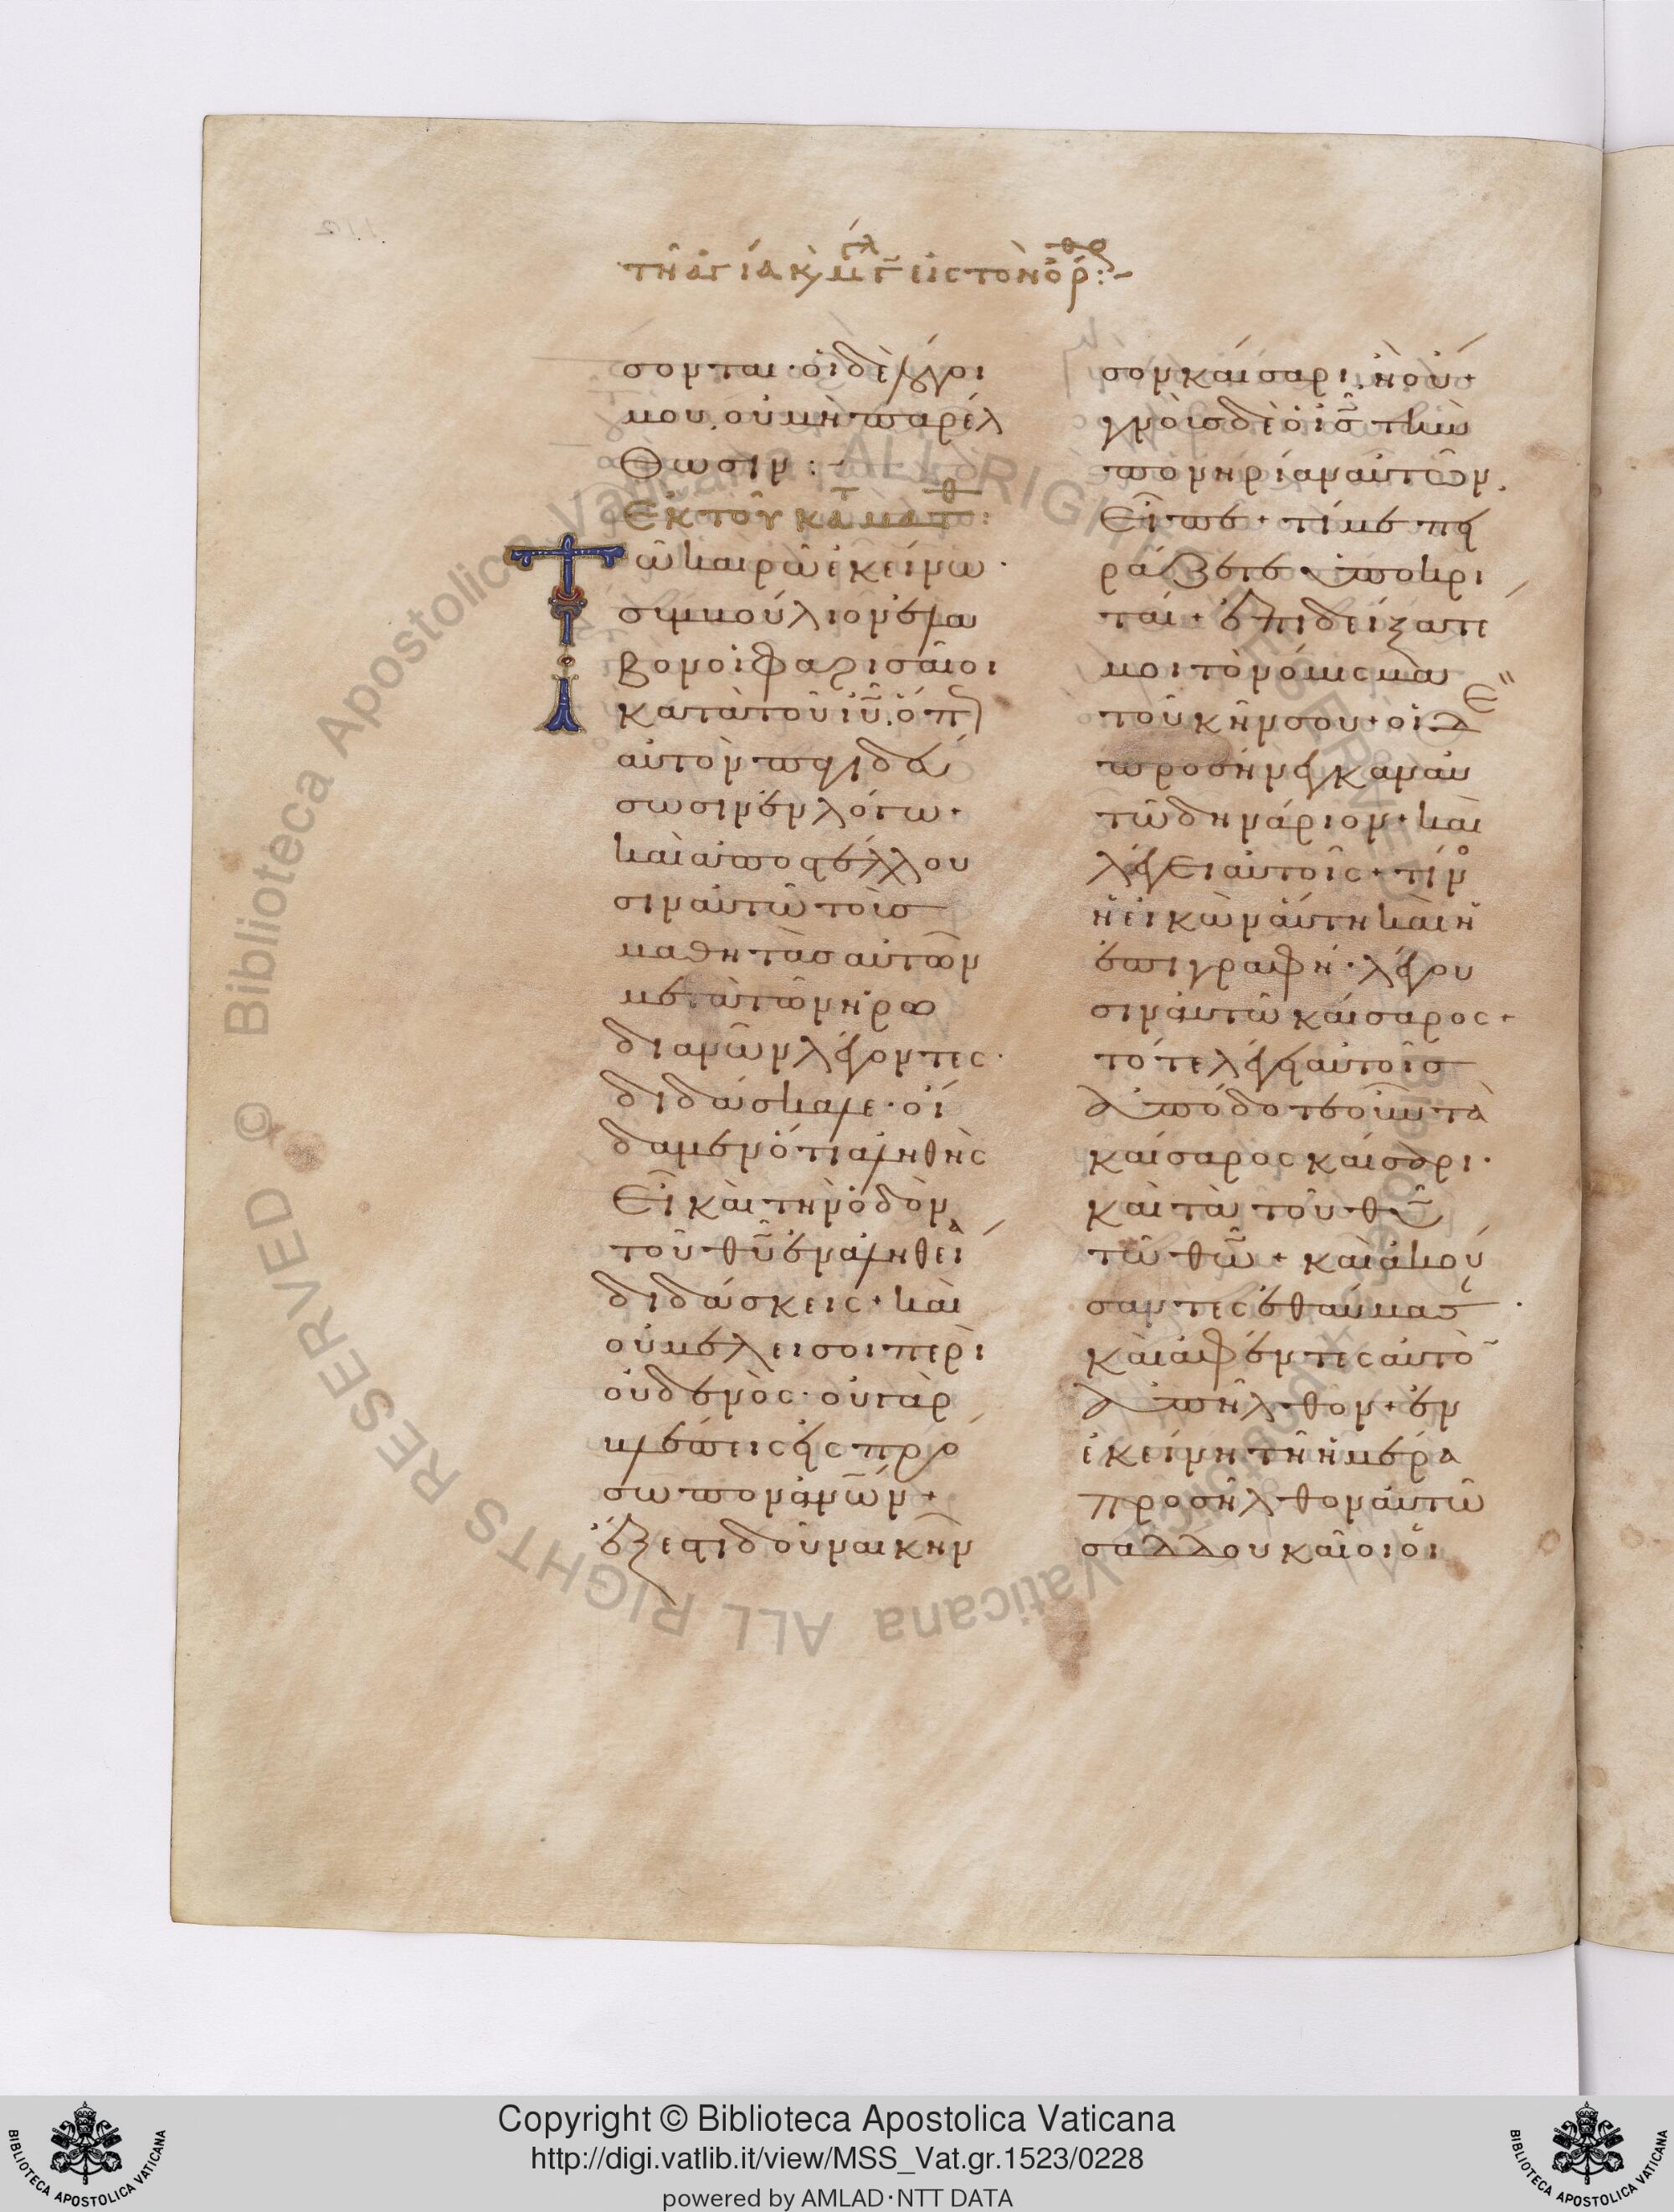 τῆ ἁγία κ μεγ γ εἰς τὸν ὄρθρ :-
σονται · οἱ δὲ λόγοι
μου, οὐ μὴ παρέλ
θωσιν : -
Ἐκ τοῦ κατὰ ματθ :
Τῶ καιρῶ ἐκείνω ·
συμβούλιον ἔλα
βον οἱ φαρισαῖοι
κατὰ τοῦ ιυ. ὅπως
αὐτὸν παγιδεύ
σωσιν ἐν λόγω ·
καὶ ἀποστέλλου
σιν αὐτῶ τοὺσ
μαθητὰσ αὐτῶν
μετὰ τῶν ἡρω
διανῶν λέγοντες ·
διδάσκαλε · οἴ
δαμεν ὅτι ἀληθὴς
εἶ καὶ τὴν ὁδὸν
τοῦ θυ ἐν ἀληθεία
διδάσκεις · καὶ
οὐ μέλει σοι περὶ
οὐδενὸς · οὐ γὰρ
βλέπεις εἰς πρό
σωπον ἀνων ·
ἔξεστι δοῦναι κῆν
σον καίσαρι, ἢ οὔ ·
γνοὺσ δὲ ὁ ισ τὴν
πονηρίαν αὐτῶν.
εἶπε · τί με πει
ράζετε ὑποκρι
ταί · ἐπιδείξατέ
μοι τὸ νόμισμα
τοῦ κήνσου · οἱ δὲ
προσήνεγκαν αὐ
τῶ δηνάριον · καὶ
λέγει αὐτοῖς · τίνος
ἡ εἰκὼν αὕτη καὶ ἡ
ἐπιγραφή · λέγου
σιν αὐτῶ καίσαρος ·
τότε λέγει αὐτοῖσ
ἀπόδοτε οὖν τὰ
καίσαρος καίσαρι ·
καὶ τὰ τοῦ θυ
τῶ θω · καὶ ἀκού
σαντες ἐθαύμασ ·
καὶ ἀφέντες αὐτὸ
ἀπῆλθον · ἐν
ἐκείνη τῆ ἡμέρα
προσῆλθον αὐτῶ
σαδδουκαῖοι οἱ
Copyright © Biblioteca Apostolica Vaticana
http://digi.vatlib.it/view/MSS_Vat.gr.1523/0228
powered by AMLAD·NTT DATA